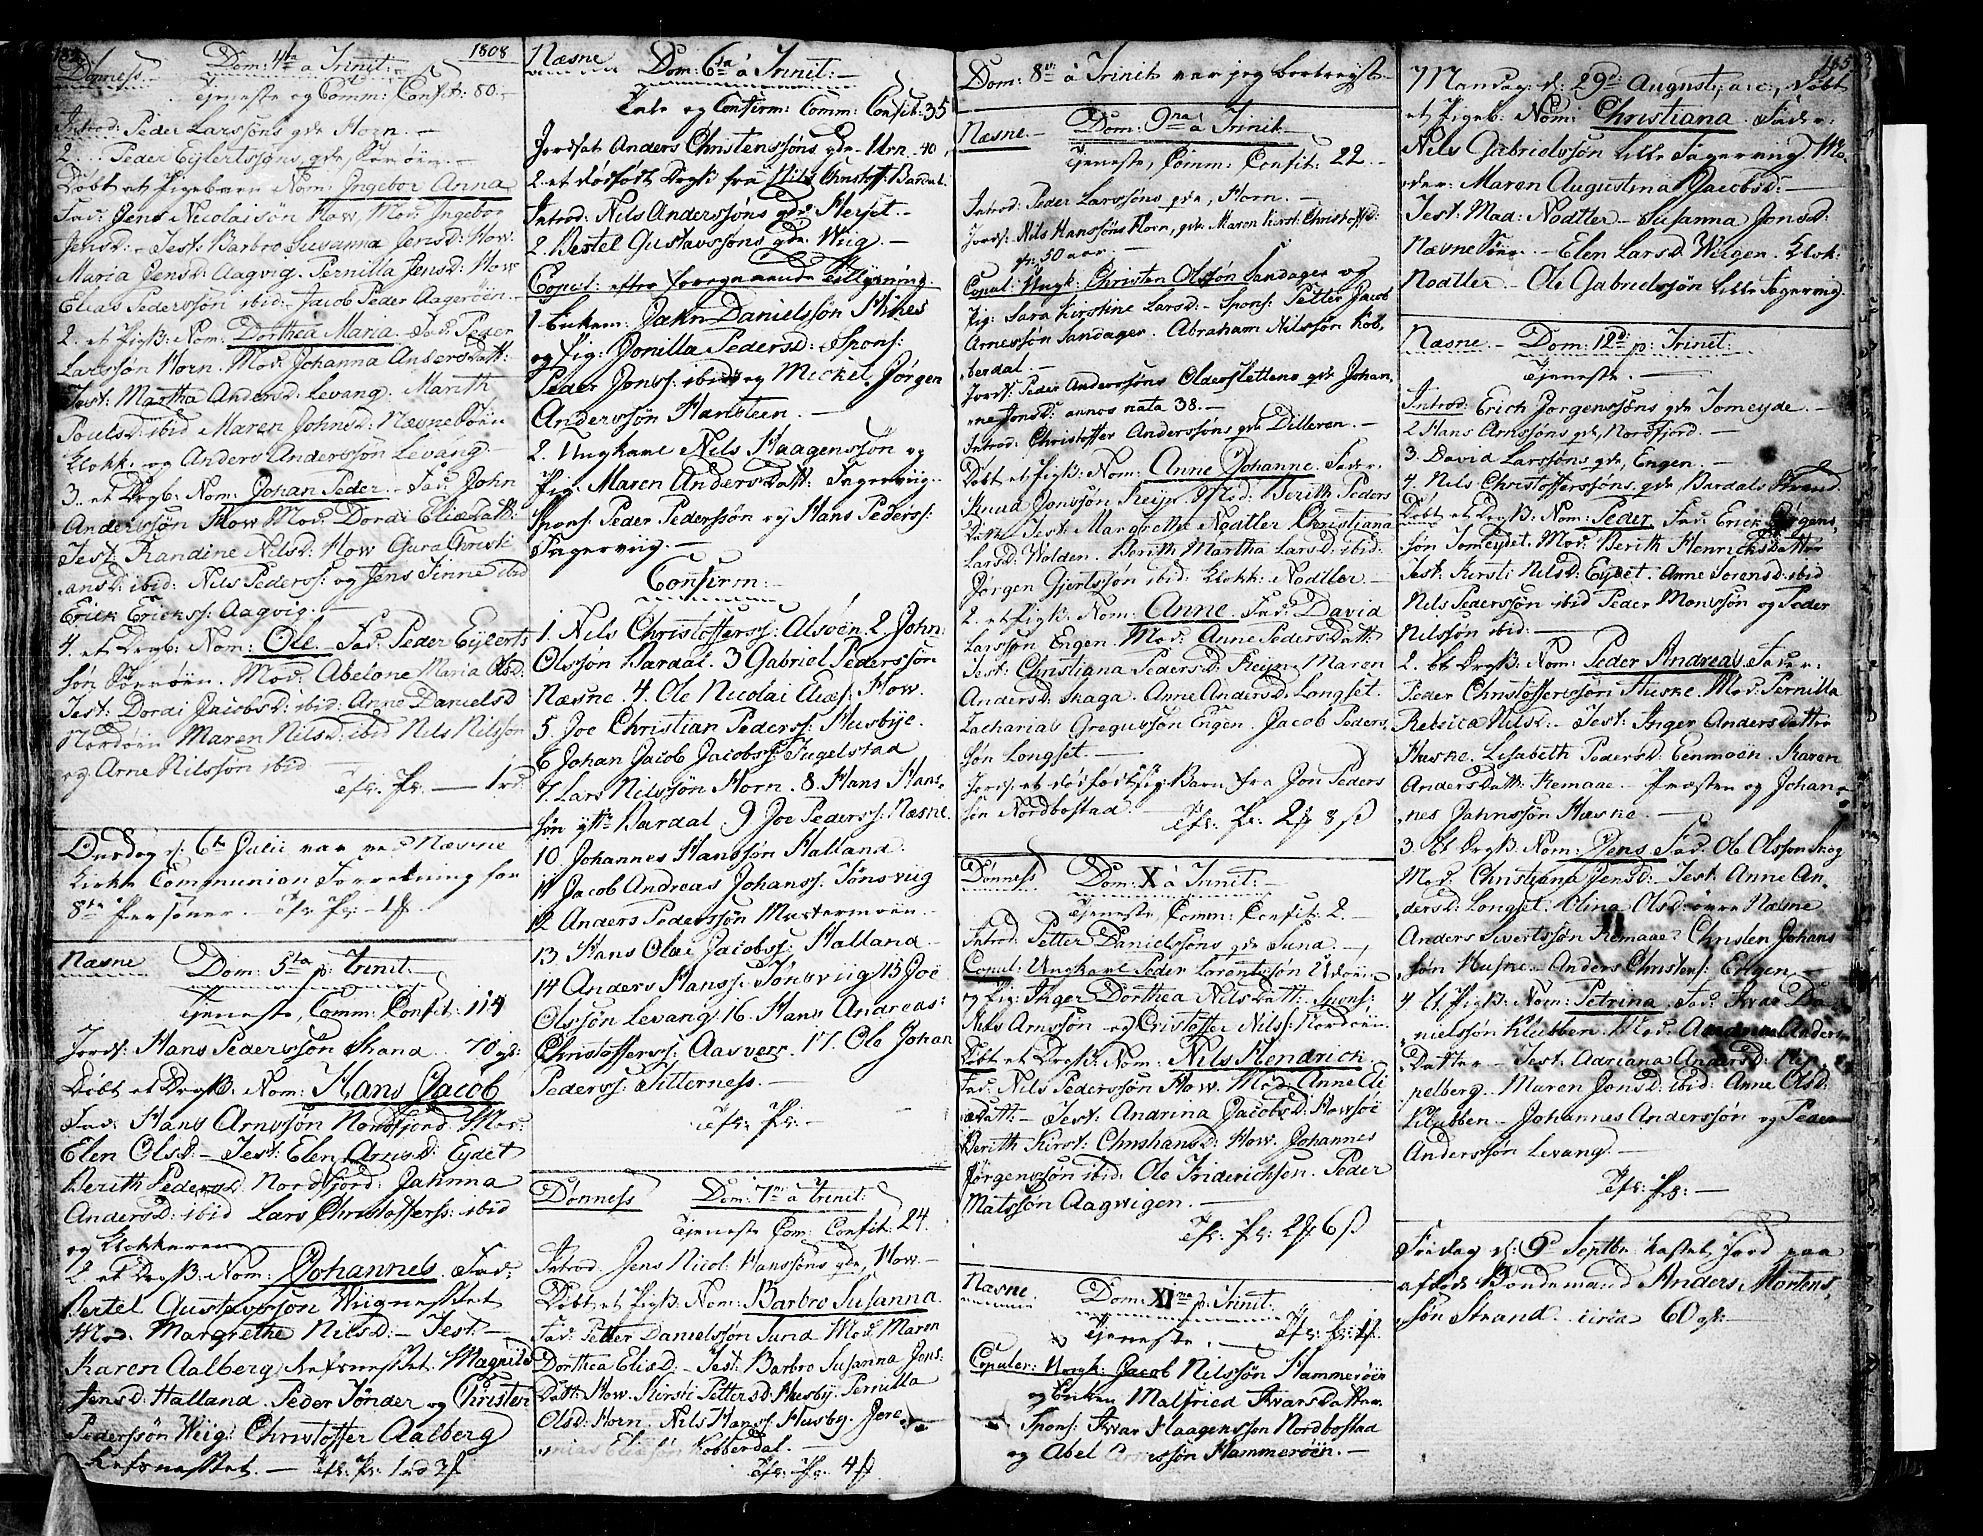 1808
Dønness. Dom: 4ta a Trinit:
Tjeneste og Comm: Confit: 80.
Introd: Peder Larssøns qde Horn. —
2. Peder Eylertssøns, qde,
Døbt et Pigebarn Nom: Ingebor Anna
Fad: Jens Nicolaisøn How, Mod: Ingebor
Jensd: – Test: Barbro Susanna Jensd: How.
Maria Jensd: Aagvig. Pernilla Jensd: How
Elias Pederssøn ibid: Jacob Peder Aagerøen.
2. et PigB: Nom: Dorthea Maria. Fad: Peder
Larssøn Horn. Mod: Johanna AndersDatt:
Test: Martha Andersd: Levang. Marith
Poulsd: ibid Maren Johnsd: Næsne
Klokk: og Anders Anderssøn Levang.
3. et Drgb: Nom: Johan Peder. Fad: John
Anderssøn How Mod: Dordi EliæDatt:
Test: Randine Nilsd: How Gura Christi
ansd: ibid: Nils Pederss: og Jens Finne ibid
Erick Ericks: Aagvig. —
4. et Drgb: Nom: Ole. Fad: Peder Eylerts
søn. Mod: Abelone Maria Olsd:
Test: Dordi Jacobsd: ibid: Anne Danielsd
Nordøen Maren Nilsd: ibid Nils Nilssøn
og Arne Nilssøn ibid —
Tfr: Pr: — 1 rd
Onsdag d: 6te Julii var ved Næsne
Kirke Communion Forretning for
8te Personer. Tfr: Pr: 1
Næsne Dom: 5ta p: Trinit:
Tjeneste, Comm: Confit: 114
Jords: Hans Pederssøn Strand. 70
Døbt et DrgB: Nom: Hans Jacob
Fad: Hans Arnssøn Nordfjord. Mod:
Elen Olsd: – Test: Elen Arnsd: Eydet
Berith Pedersd: Nordfjord: Jahnna
Andersd: ibid Lars Christofferss: ibid
og Klokkeren
2. et DrgB: Nom: Johannes. Fad:
Bertel Gustavssøn Wiigneshet
Mod: Margrethe Nilsd: – Test: –
Karen Aalberg. Magnild
Jensd: Halland. Peder Tønder og Christen
Pederssøn Wiig: Christoffer Aalberg
. — Tfr: Pr: 1 rd
Næsne Dom: 6ta a Trinit: –
Tale og Confirm: Comm: Confit: 35
Jordsat Anders Christenssøns qde Urn. 40,
2. et dødfødt DrgB fra Nils Christoff: Bardal.
Introd: Nils Anderssøns qde Herset. –
2. Bertel Gustavssøns qde: Wiig. –
Copul: efter foregaaende Tillysning
1 Enkem: Jahn Danielssøn
og Pig: Jonilla Pedersd: Spons:
Peder Jonss: ibid: og Mickel Jørgen
Anderssøn Hansteen. —
2. Ungkarl Nils Haagenssøn og
Pig: Maren AndersDatt: Fagerviig.
Spons: Peder Pederssøn og Hans Pederss:
Fagerviig. —
Confirm: –
1. Nils Christofferss: Alsøen. 2 John
Olssøn Bardal. 3 Gabriel Pederssøn
Næsne. 4. Ole Nicolai How.
5. Joe Christian Pederss: Husbye.
6 Johan Jacob Jacobss: Fugelstad
7. Lars Nilssøn Horn. 8. Hans Hans,
søn ytt: Bardal. 9 Joe Pederss: Næsne.
10. Johannes Hanssøn Halland.
11 Jacob Andreas Johanss: Tønsviig
12 Anders Pederssøn Mastermoen. –
13 Hans Olai Jacobss: Halland –
14 Anders Hanss: Tønsviig 15 Joe
Olssøn Levang 16. Hans Andreas:
Christofferss: Aasverr. 17. Ole Johan
Pederss: Sitterness. –
Tfr: Pr: –
Dønness Dom: 7ma a Trinit:
Tjeneste Com: Confit: 24.
Introd. Jens Nicol: Hanssøns qde, How –
Døbt et PigB: Nom: Barbro Susanna.
Fad: Petter Danielssøn Sund Mod: Maren
Dorthea Elisd: – Test: Barbro Susanna Jens:
Datt: How. Kirsti Pettersd: Husby. Pernilla
Olsd: Horn. Nils Hanss: Husby. Jere,
mias Kobberdal. —
Tfr: Pr: 4
Dom: 8va a Trinit: var jeg bortreyst –
Næsne. – Dom: 9na a Trinit: –
Tjeneste, Comm: Confit: 22. –
Introd: Peder Larssøns qde, Horn. –
Jords: Nils Hanssøns Horn, qde Maren Kirst: Christoffd:
50 aar –
Copul: Ungk: Christen Olssøn Sandager og
Pig: Sara Kirstine Larsd: – Spons: Petter Jacob
Arnessøn Sandager. Abraham Nilssøn Kob,
berdal. –
Jords: Peder Anderssøns Olderslettens qde Johan,
ne Jonsd: annos nata 38. –
Introd: Christoffer Anderssøns qde Dilleren. –
Døbt et PigB: Nom: Anne Johanne. Fader:
Knud Jonssøn. Mod: Berith Peders
Datt. Test: Margrethe Nodtler Christiana
Larsd: Wolden. Berith Martha Larsd: ibid:
Jørgen Gjertssøn ibid: Klokk: Nodtler –
2. et PigB: Nom: Anne. Fad: David
Larssøn Engen. Mod: Anne PedersDatt:
Test: Christiana Pedersd: Maren
Andersd: Skaga. Anne Andersd: Longset.
Zacharias Gregussøn Engen. Jacob Peders,
søn Longset. –
Jords: et dødfødt PigBarn fra Jon Peders
søn Nordbostad. – Tfr: Pr: 2 8 ß
Dønness Dom: X a Trinit: –
Tjeneste Comm: Confit: 2. –
Introd: Petter Danielssøns qde Sund. –
Copul: Ungkarl Peder Lorentssøn
og Pig: Inger Dorthea NilsDatt: Spons:
Nils Arnssøn og Cristoffer Nilss: Nordøen.
Døbt et DrgB: Nom: Nils Hendrick.
Fad: Nils Pederssøn How. Mod: Anne Eli
æDatt: – Test: Andrina Jacobsd: Howsøe
Berith Kirst: Christiansd: How. Johannes
Jørgenssøn ibid: Ole Friderichsen. Peder
Matssøn Aagwigen. —
Tfr: Pr: 2 6 ß
Næsne Dom: XIma p: Trinit:
Tjeneste. — Tfr: Pr: 1
Copuler: Ungk: Jacob Nilssøn Hammerøen
og Enken Malfried IvarsDatter
Spons: Ivar Haagenssøn Nordbostad
og Abel Arnssøn Hammerøen. –
185
Mandag d: 29de Augusti, a: c:, døbt
et Pigeb: Nom: Christiana. Fader:
Nils Gabrielssøn lille Fagerviig. Mo,
der: Maren Augustina Jacobsd: –
Test: Mad: Nodtler – Susanna Jonsd:
Næsne – Elen Larsd Wiigen. Klok:
Nodtler – Ole Gabrielssøn lille Fagerviig.
Næsne – Dom: 12 p: Trinit:
Tjeneste. —
Introd: Erich Jørgenssøns qde Tomeyde. –
2 Hans Arnssøns qde, Nordfjord –
3. David Larssøns qde, Engen. –
4. Nils Christofferssøns qde, Bardals Strand.
Døbt et DrgB: Nom: Peder. Fad: Erick Jørgens,
søn Tomeydet. Mod: Berith HenricksDatter
Test: Kirsti Nilsd: Eydet. Anne Sørensd: ibid
Nils Pederssøn ibid Peder Monssøn og Peder
Nilssøn ibid: —
2. Et DrgB: Nom: Peder Andreas. Fader:
Peder Christofferssøn Husne. Mod: Pernilla
Rebecca Nilsd: – Test: Inger AndersDatter
Husne. Lisabeth Pedersd: Eenmoen. Karen
AndersDatt: Remaae. – Præsten og Johan,
nes Jahnssøn Husne. –
3. Et DrgB: Nom: Jens. Fad: Ole Olssøn Skog
Mod: Christiana Jensd: – Test: Anne An,
dersd: Longset. Olina Olsd: Næsne
Anders Sivertssøn Remaae. Christen Johans
søn Husne. Anders Christens: Engen –
4 Et PigB: Nom: Petrina. Fad: Ivar Da
nielssøn Klubben. Mod: Anders
Datter – Test: Adriana Andersd: Hep
pelberg. Maren Jonsd: ibid: Anne Olsd:
Klubben – Johannes Anderssøn og Peder
Anderssøn Levang. –
Tfr: Pr: –
Tirsdag d: 6te Septbr kastet Jord paa
afdøde Bondemand Anders Mortens,
søn Strand. circa 60